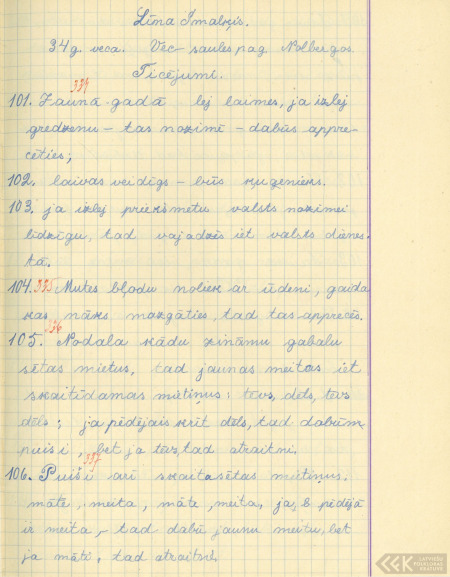 Līna Smalķis.
34 g. veca. Vec-saules pag. Nolbergos.
Ticējumi.
334
101. Jaunā gadā lej laimes, ja izlej
gredzenu – tas nozīmē – dabūs appre-
cēties;
102. laivas veidīgs – būs kuģenieks.
103. ja izlej priekšmetu valsts nozīmei
līdzīgu, tad vajadzēs iet valsts dienes-
tā.
104. 335 Mutes bļodu noliek ar ūdeni, gaida
kas nāks mazgāties, tad tas apprecēs.
336
105. Nodala kādu zināmu gabalu
sētas mietus, tad jaunas meitas iet
skaitīdamas mietiņus: tēvs, dēls, tēvs
dēls; ja pēdējais krīt dēls, tad dabūn
puisi, bet ja tēvs, tad atraitni.
337
106. Puiši arī skaita sētas mietiņus.
māte, meita, māte, meita, ja pēdējā
ir meita, – tad dabū jaunu meitu, bet
ja māti, tad atraitni.
LATVIEŠU
FOLKLORAS
KRĀTUVE